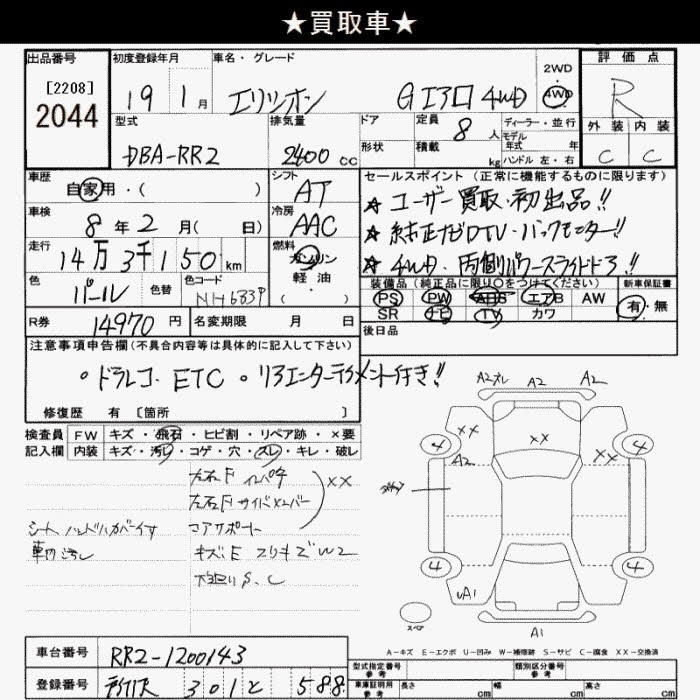 ★買取車★
出品番号
[2208]
2044
初度登録年月
19 1月
車名・グレード
エリシオン Gエアロ 4WD
2WD
4WD
評価点
R
外装 内装
C C
型式
DBA-RR2
排気量
2400 cc
ドア
形状
定員 8人
積載 kg
ディーラー・並行
モデル
年式 年
ハンドル 左・右
車歴
自家用・( )
シフト
AT
車検
8年2月( 日)
冷房
AAC
走行
14万3千150km
燃料
ガソリン
軽・油
・( )
色
パール
色替
色コード
NH683P
セールスポイント(正常に機能するものに限ります)
★ユーザー買取・初出品!!
★純正ナビDTV・バックモニター!!
★4WD・両側パワースライドドア!!
装備品(純正品に限り〇をつけてください)
PS PW ABS エアB AW
SR ナビ TV カワ
新車保証書
有・無
R券 14970円
名変期限 月 日
後日品
注意事項申告欄(不具合内容等は具体的に記入して下さい)
・ドラレコ ETC ・リアエンターテイメント付き!!
修復歴 有 〔箇所 〕
検査員
記入欄
FW キズ・飛石・ヒビ割・リペア跡・×要
内装 キズ・汚れ・コゲ・穴・スレ・キレ・破レ
左右F インパネ
左右F サイドメンバー
コアサポート
××
キズE スリキズW2
下廻りS、C
シート ハンドルカバーイス
車内汚レ
A2ズレ A2 A2
4 ×× ×× 4
A2 ××
4 4
A1
A1
スペア
A-キズ E-エクボ U-凹み W-補修跡 S-サビ C-腐食 XX-交換済
車台番号 RR2-1200143
登録番号 301 と 588
型式指定番号
参考
類別区分番号
参考
車庫証明用
参考
長さ cm 幅 cm 高さ cm